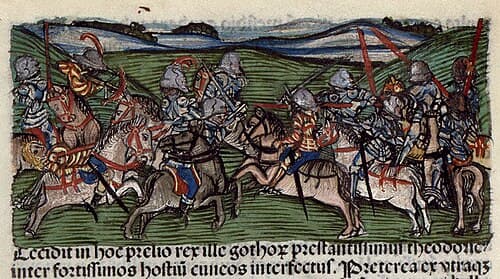 Cecidit in hoc prelio rex ille gothoꝝ prestantissimus
inter fortissimos hostiū cuneos interfectus. Preterea ex vtraqꝫ